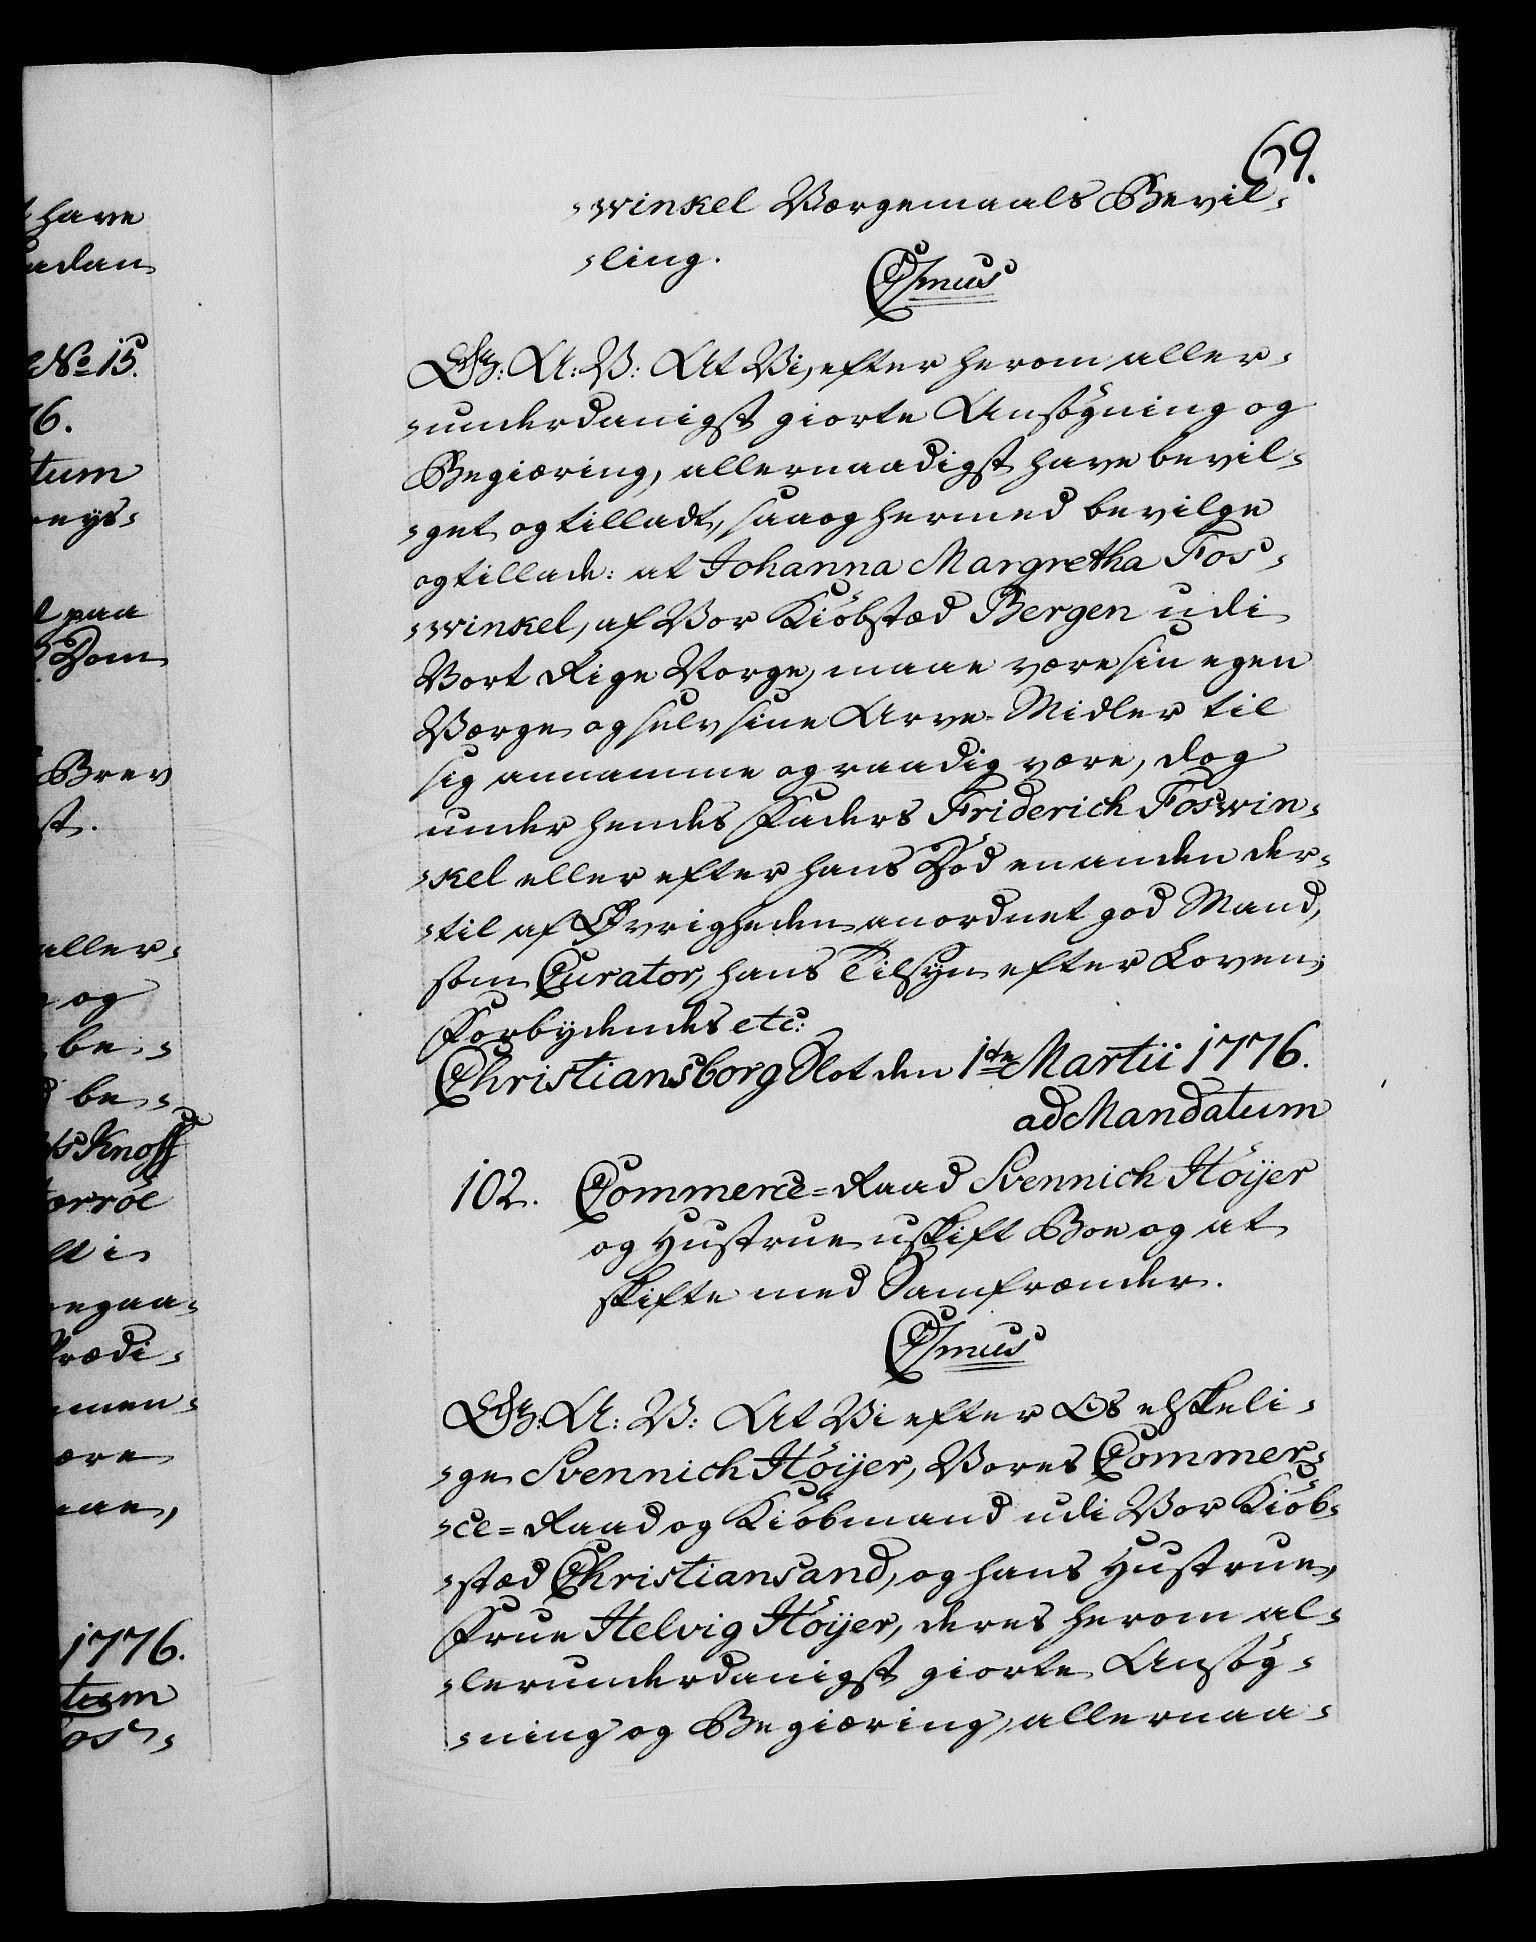 69.
-winkel Værgemaals Bevil-
-ling.
CSmus
GG: A: V: At Vi, efter herom aller-
-underdanigst giorte Ansøgning og
Begiæring, allernaadigst have bevil-
-get og tilladt, saa og hermed bevilge
og tillade: at Johanna Margretha Fos-
-winkel, af Vor Kiöbstæd Bergen udi
Vort Rige Norge, maae være sin egen
Værge og selv sine Arve-Midler til
sig annamme og raadig være, dog
under hendes Faders Friderich Foswin-
-kel eller efter hans Död en anden der-
-til af Øvrigheden anordnet god Mand,
som Curator, hans Tilsyn efter Loven;
Forbydendes etc:
Christiansborg Slot den 1te Martii 1776.
ad Mandatum
102. Commerce=Raad Svennich Höyer
og Hustrue uskift Boe og at
skifte med Samfrænder.
CSmus
GG: A: V: At Vi efter Os elskeli-
-ge Svennich Höyer, Vores Commer-
-ce=Raad og Kiöbmand udi Vor Kiöb-
-stæd Christiansand, og hans Hustrue,
Frue Helvig Höyer, deres herom al-
-lerunderdanigst giorte Ansøg-
-ning og Begiæring, allernaa-
have
adan
No 15.
76.
tum
paa
Dom
Brev
st.
aller-
og
be-
be-
Knoff
ti
Prædi-
men-
ære
1776.
tum
os-